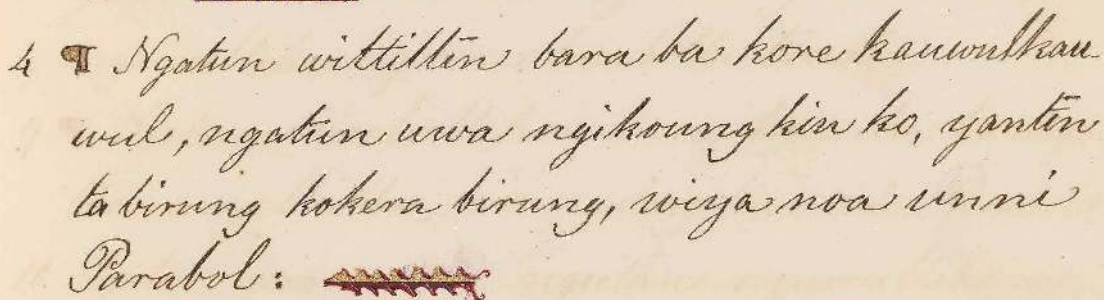 4 ¶ Ngatun wittillīn bara ba kore kauwulkau-
wul, ngatun uwa ngikoung kin ko, yantīn
ta birung kokera birung, wiya noa unni
Parabol: